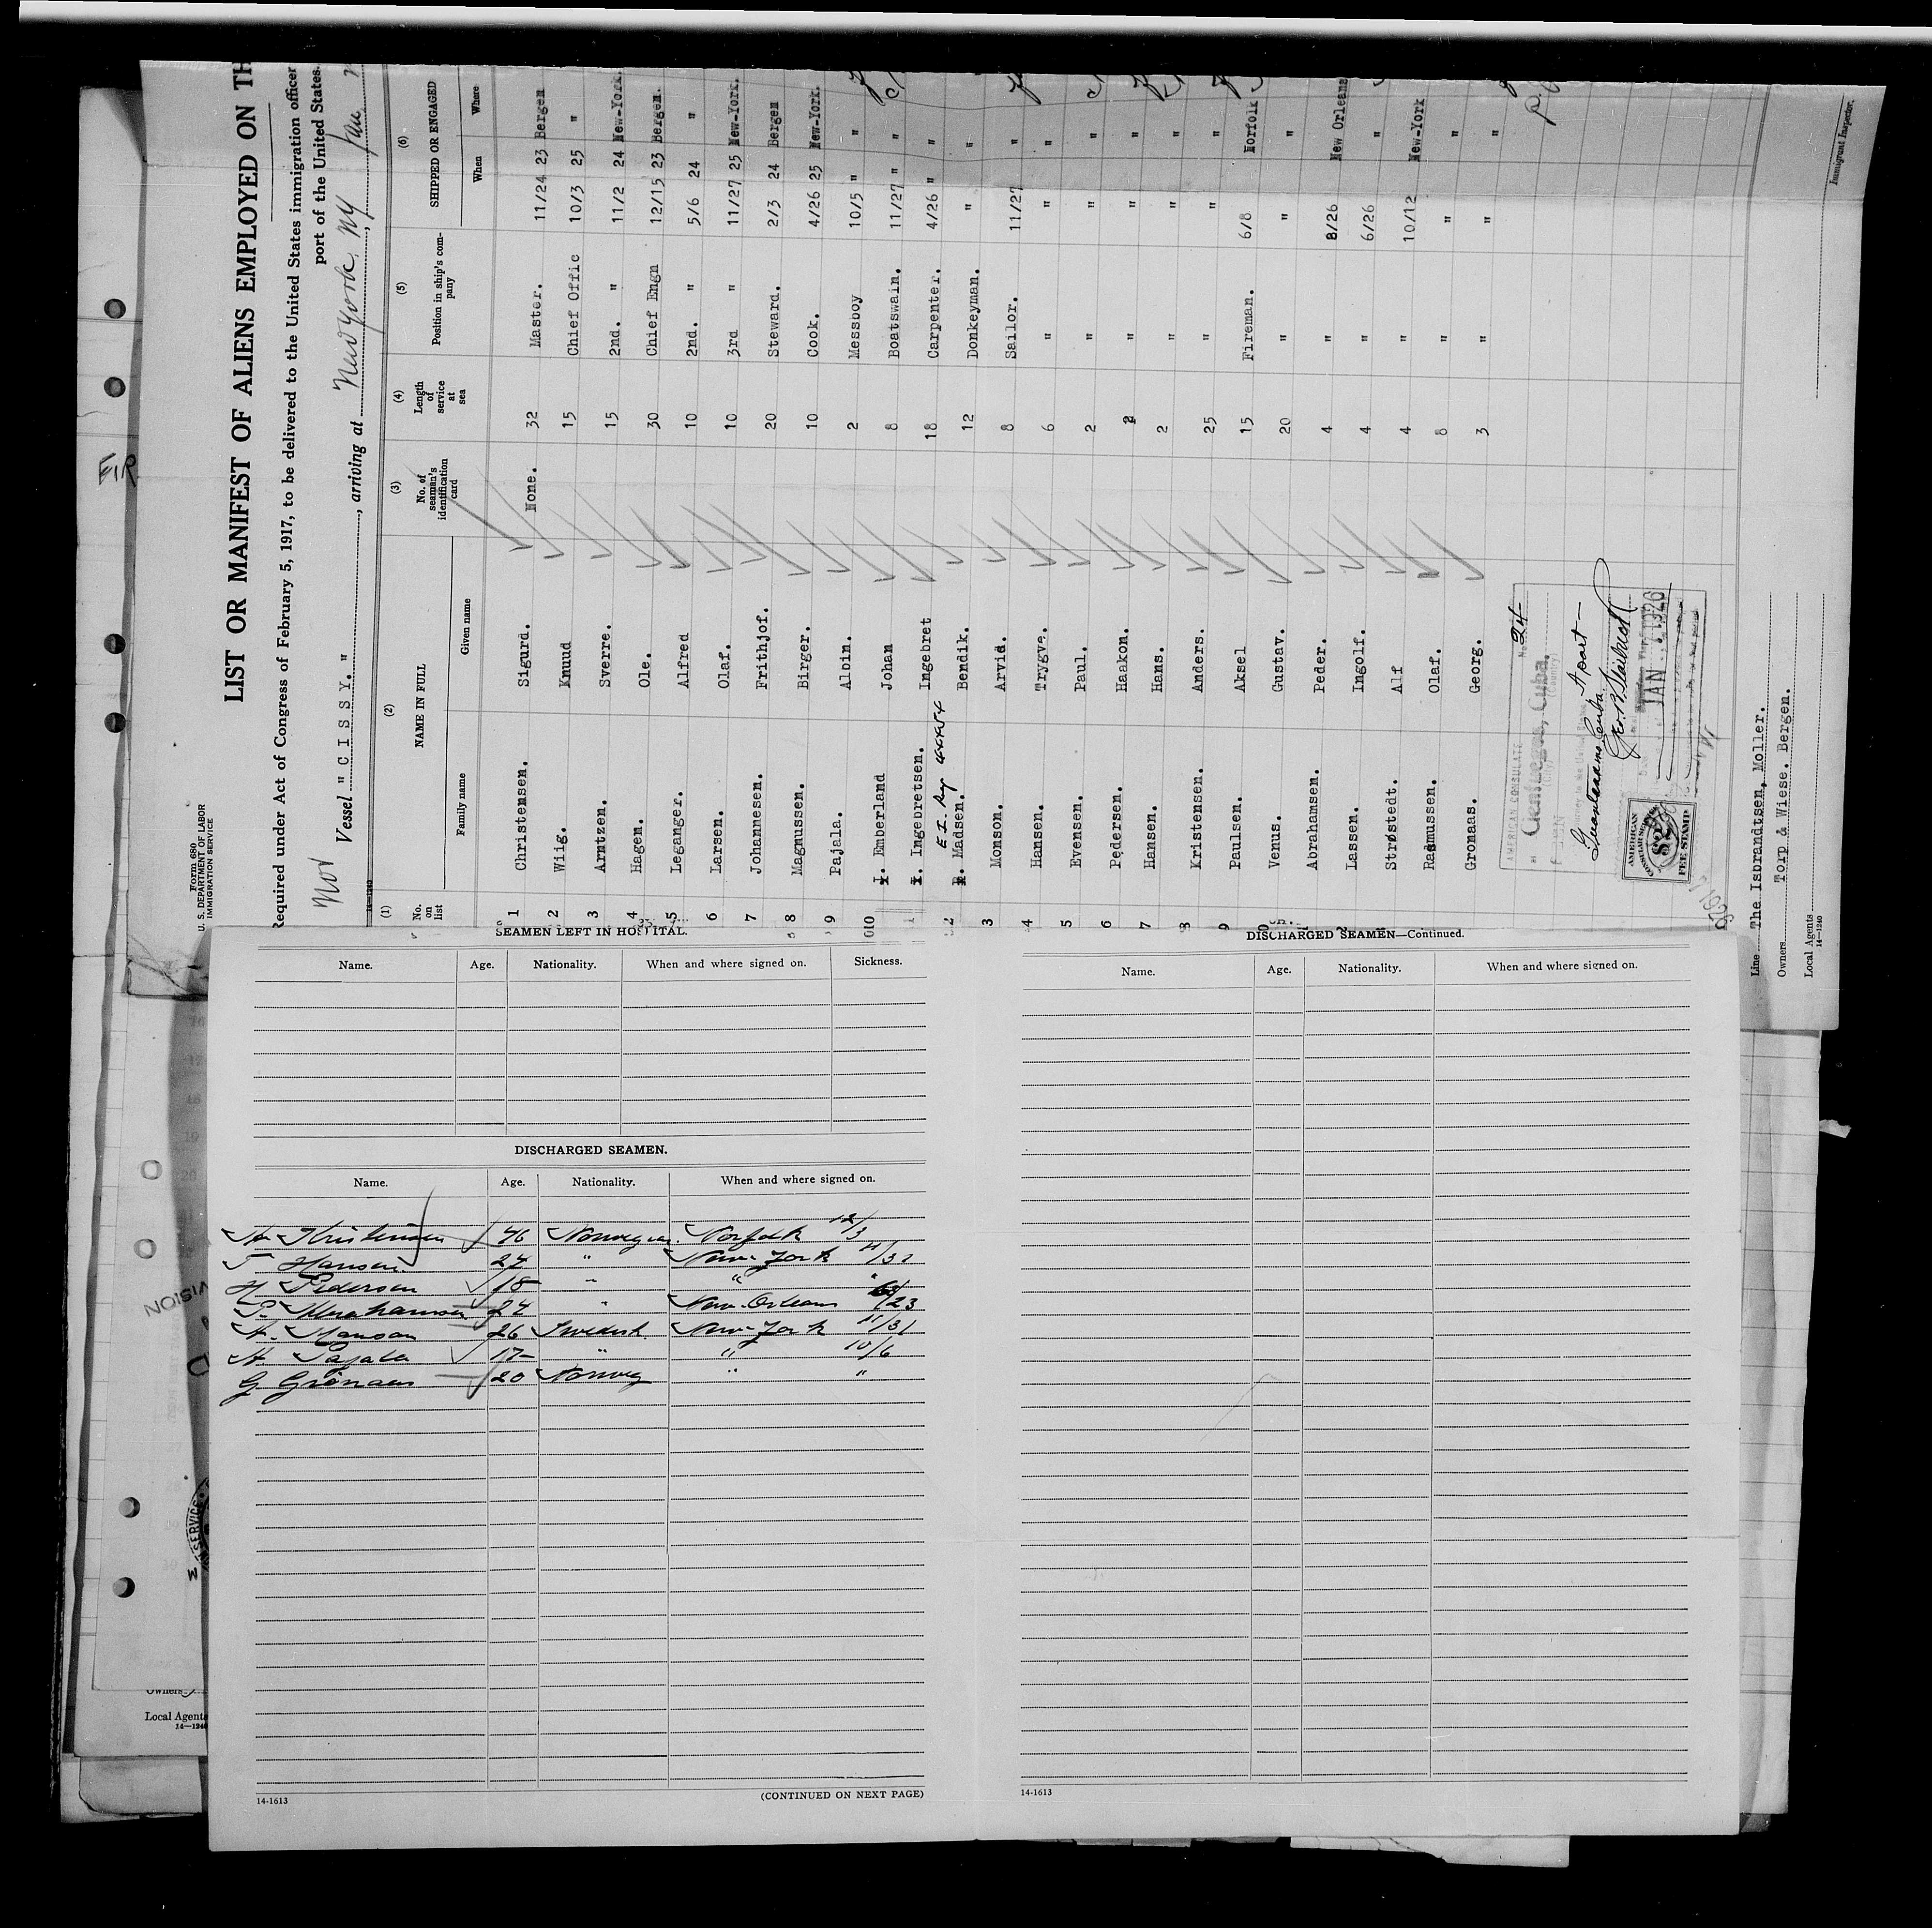 Form 680
U. S. DEPARTMENT OF LABOR
IMMIGRATION SERVICE
LIST OR MANIFEST OF ALIENS EMPLOYED ON TH
Required under Act of Congress of February 5, 1917, to be delivered to the United States immigration officer
port of the United States.
Nor Vessel "CISSY.", arriving at New York, NY, Jan
14-1240
(1) (2) (3) (4) (5) (6)
No. on list NAME IN FULL No. of seaman's identification card Length of service at sea Position in ship's company SHIPPED OR ENGAGED
Family name Given name When Where
1 Christensen. Sigurd. None. 32 Master. 11/24 23 Bergen
2 Wiig. Knuud 15 Chief Offic 10/3 25 "
3 Arntzen. Sverre. 15 2nd. " 11/2 24 New-York.
4 Hagen. Ole. 30 Chief Engn 12/15 23 Bergen.
5 Leganger. Alfred 10 2nd. " 5/6 24 "
6 Larsen. Olaf. 10 3rd " 11/27 25 New-York.
7 Johannesen. Frithjof. 20 Steward. 2/3 24 Bergen
8 Magnussen. Birger. 10 Cook. 4/26 25 New-York.
9 Pajala. Albin. 2 Messboy 10/5 " "
10 Emberland Johan 8 Boatswain. 11/27 " "
1 Ingebretsen. Ingebret 18 Carpenter. 4/26 " "
2 Madsen. Bendik. 12 Donkeyman. " "
3 Monson. Arvid. 8 Sailor. 11/27 "
4 Hansen. Trygve. 6 " " "
5 Evensen. Paul. 2 " " "
6 Pedersen. Haakon. 2 " " "
7 Hansen. Hans. 2 " " "
8 Kristensen. Anders. 25 " " "
9 Paulsen. Aksel 15 Fireman. 6/8 Norfolk
Venus. Gustav. 20 " " "
Abrahamsen. Peder. 4 " 8/26 New Orleans
Lassen. Ingolf. 4 " 6/26 "
Strøstedt. Alf 4 " 10/12 New-York
Rasmussen. Olaf. 8 " " "
Gronaas. Georg. 3 " " "
AMERICAN CONSULATE
No. 24
Cienfuegos, Cuba.
Guantanamo Cuba
JAN 1926
AMERICAN
FEE STAMP
Line The Isbrandtsen, Moller.
Owners Torp & Wiese. Bergen.
Local Agents
14-1240
Immigrant Inspector.
SEAMEN LEFT IN HOSPITAL.
Name. Age. Nationality. When and where signed on. Sickness.
DISCHARGED SEAMEN.
Name. Age. Nationality. When and where signed on.
A. Kristensen 46 Norwegian Norfolk 12/3
T Hansen 27 " New-York
H Pedersen 18 " " "
P. Abrahamsen 24 " New-Orleans /23
A. Monson 26 Swedish New-York 11/31
A. Pajala 17 " " 10/6
G. Grönaas 20 Norweg " "
14-1613
(CONTINUED ON NEXT PAGE)
DISCHARGED SEAMEN—Continued.
Name. Age. Nationality. When and where signed on.
14-1613
Owners
Local Agents
14-1240